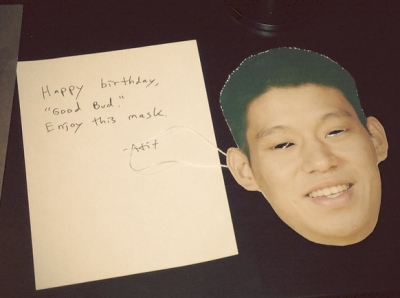 Happy birthday,
"Good Bud."
Enjoy this mask.
-Atit